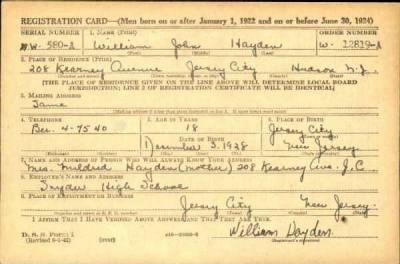 REGISTRATION CARD—(Men born on or after January 1, 1922 and on or before June 30, 1924)
SERIAL NUMBER 1. NAME (Print) ORDER NUMBER
W- 580-A William John Hayden W- 12819-A
2. PLACE OF RESIDENCE (Print)
208 Kearney Avenue Jersey City Hudson N.J.
[THE PLACE OF RESIDENCE GIVEN ON THE LINE ABOVE WILL DETERMINE LOCAL BOARD
JURISDICTION; LINE 2 OF REGISTRATION CERTIFICATE WILL BE IDENTICAL]
3. MAILING ADDRESS
Same
[Mailing address if other than place indicated on line 2. If same insert word same]
4. TELEPHONE 5. AGE IN YEARS 6. PLACE OF BIRTH
Ber. 4-7540 18 Jersey City
DATE OF BIRTH
December 3, 1928 New Jersey
7. NAME AND ADDRESS OF PERSON WHO WILL ALWAYS KNOW YOUR ADDRESS
Mrs. Mildred Hayden (mother) 208 Kearney Ave. J.C.
8. EMPLOYER'S NAME AND ADDRESS
Snyder High School
9. PLACE OF EMPLOYMENT OR BUSINESS
Jersey City New Jersey
I AFFIRM THAT I HAVE VERIFIED ABOVE ANSWERS AND THAT THEY ARE TRUE.
D. S. S. Form 1
(over)
William Hayden
(Registrant's signature)